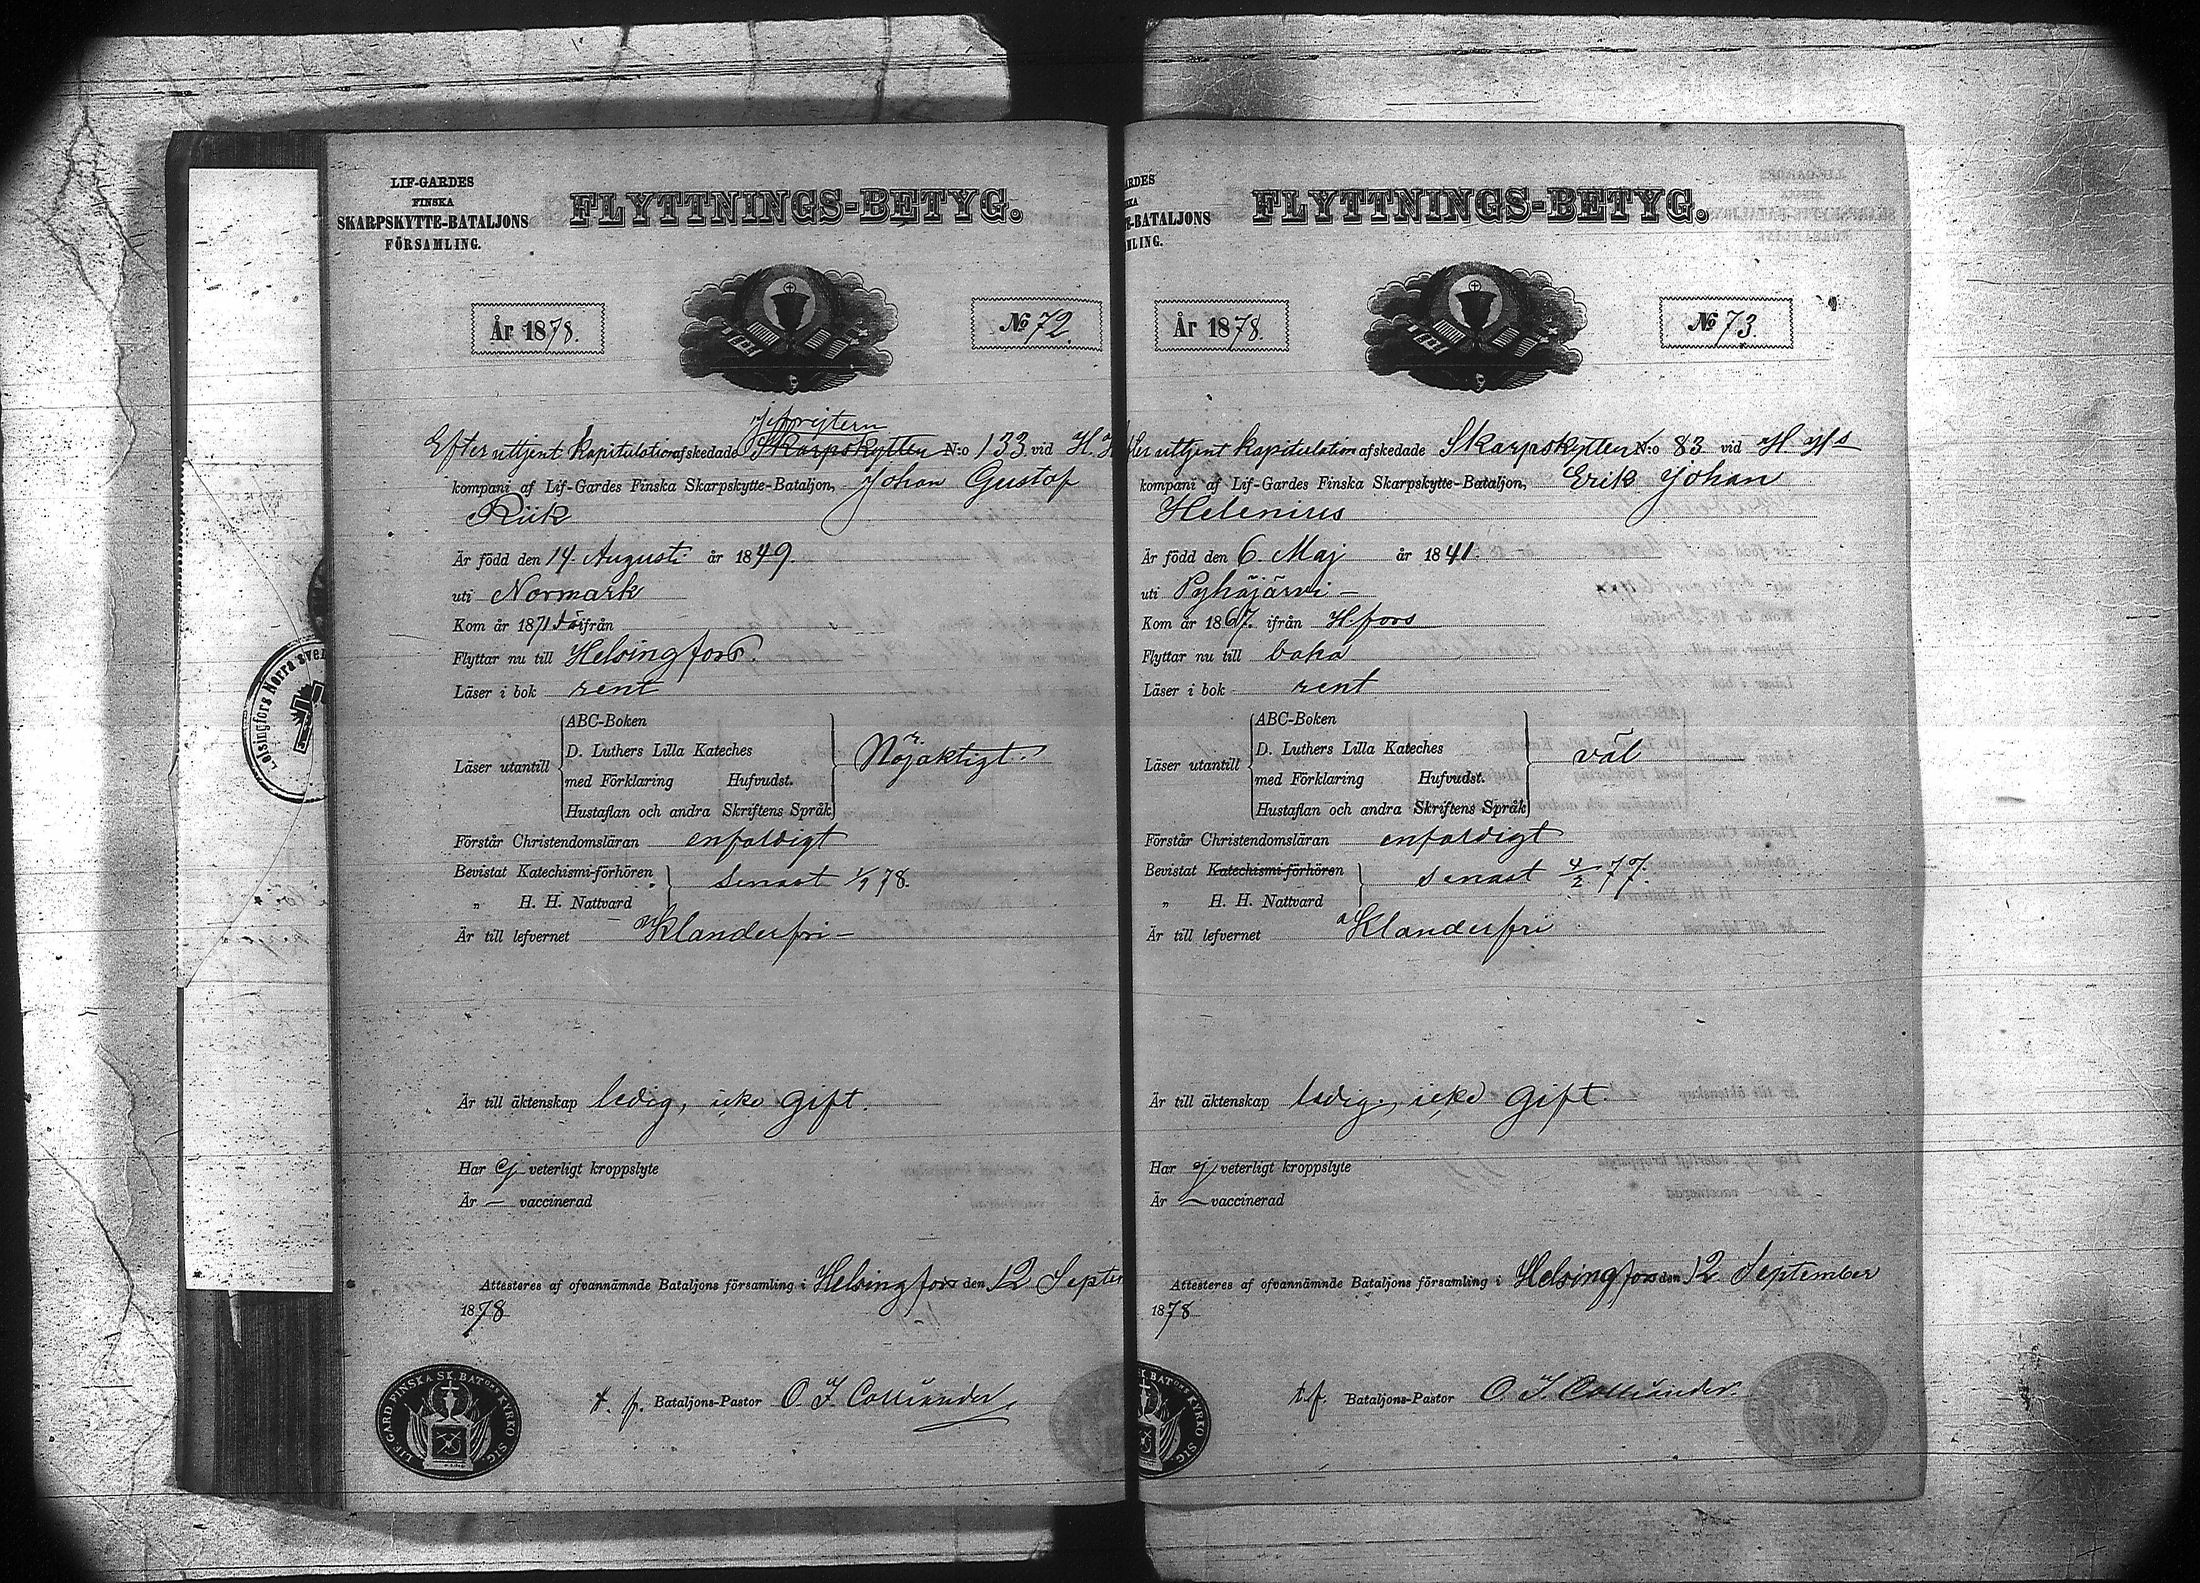 LIF-GARDES
FINSKA
SKARPSKYTTE-BATALJONS
FÖRSAMLING.
FLYTTNINGS-BETYG.
År 1878.
No 72.
Jefreitern
Efter uttjent kapitulation afskedade Skarpskytten N:o 133 vid H. H
kompani af Lif-Gardes Finska Skarpskytte-Bataljon, Johan Gustaf
Riik
Är född den 14. Augusti år 1849.
uti Normark
Kom år 1871 ifrån
Flyttar nu till Helsingfors.
Läser i bok rent
ABC-Boken
D. Luthers Lilla Kateches
Läser utantill med Förklaring Hufvudst. Nöjaktigt.
Hustaflan och andra Skriftens Språk
Förstår Christendomsläran enfaldigt
Bevistat Katechismi-förhören senast 1/1 78.
„ H. H. Nattvard
Är till lefvernet Klanderfri —
Är till äktenskap ledig, icke gift.
Har ej veterligt kroppslyte
Är — vaccinerad
Attesteres af ofvannämnde Bataljons församling i Helsingfors den 12 Septe
1878
t. f. Bataljons-Pastor O. I. Colliander
LIF GARD FINSKA SK BATONS KYRKO SIG.
Helsingfors Norra sve
RDES
KA
E-BATALJONS
MLING.
FLYTTNINGS-BETYG.
År 1878.
No 73.
ter uttjent kapitulation afskedade Skarpskytten N:o 83 vid H. H s
kompani af Lif-Gardes Finska Skarpskytte-Bataljon, Erik Johan
Helenius
Är född den 6. Maj år 1841.
uti Pyhäjärvi —
Kom år 1867. ifrån H.fors
Flyttar nu till
Läser i bok rent
ABC-Boken
D. Luthers Lilla Kateches
Läser utantill med Förklaring Hufvudst. väl
Hustaflan och andra Skriftens Språk
Förstår Christendomsläran enfaldigt
Bevistat Katechismi-förhören senast 4/2 77.
„ H. H. Nattvard
Är till lefvernet Klanderfri
Är till äktenskap ledig, icke gift.
Har ej veterligt kroppslyte
Är — vaccinerad
Attesteres af ofvannämnde Bataljons församling i Helsingfors den 12 September
1878
t. f. Bataljons-Pastor O. I. Colliander.
BATONS KYRKO SIG.